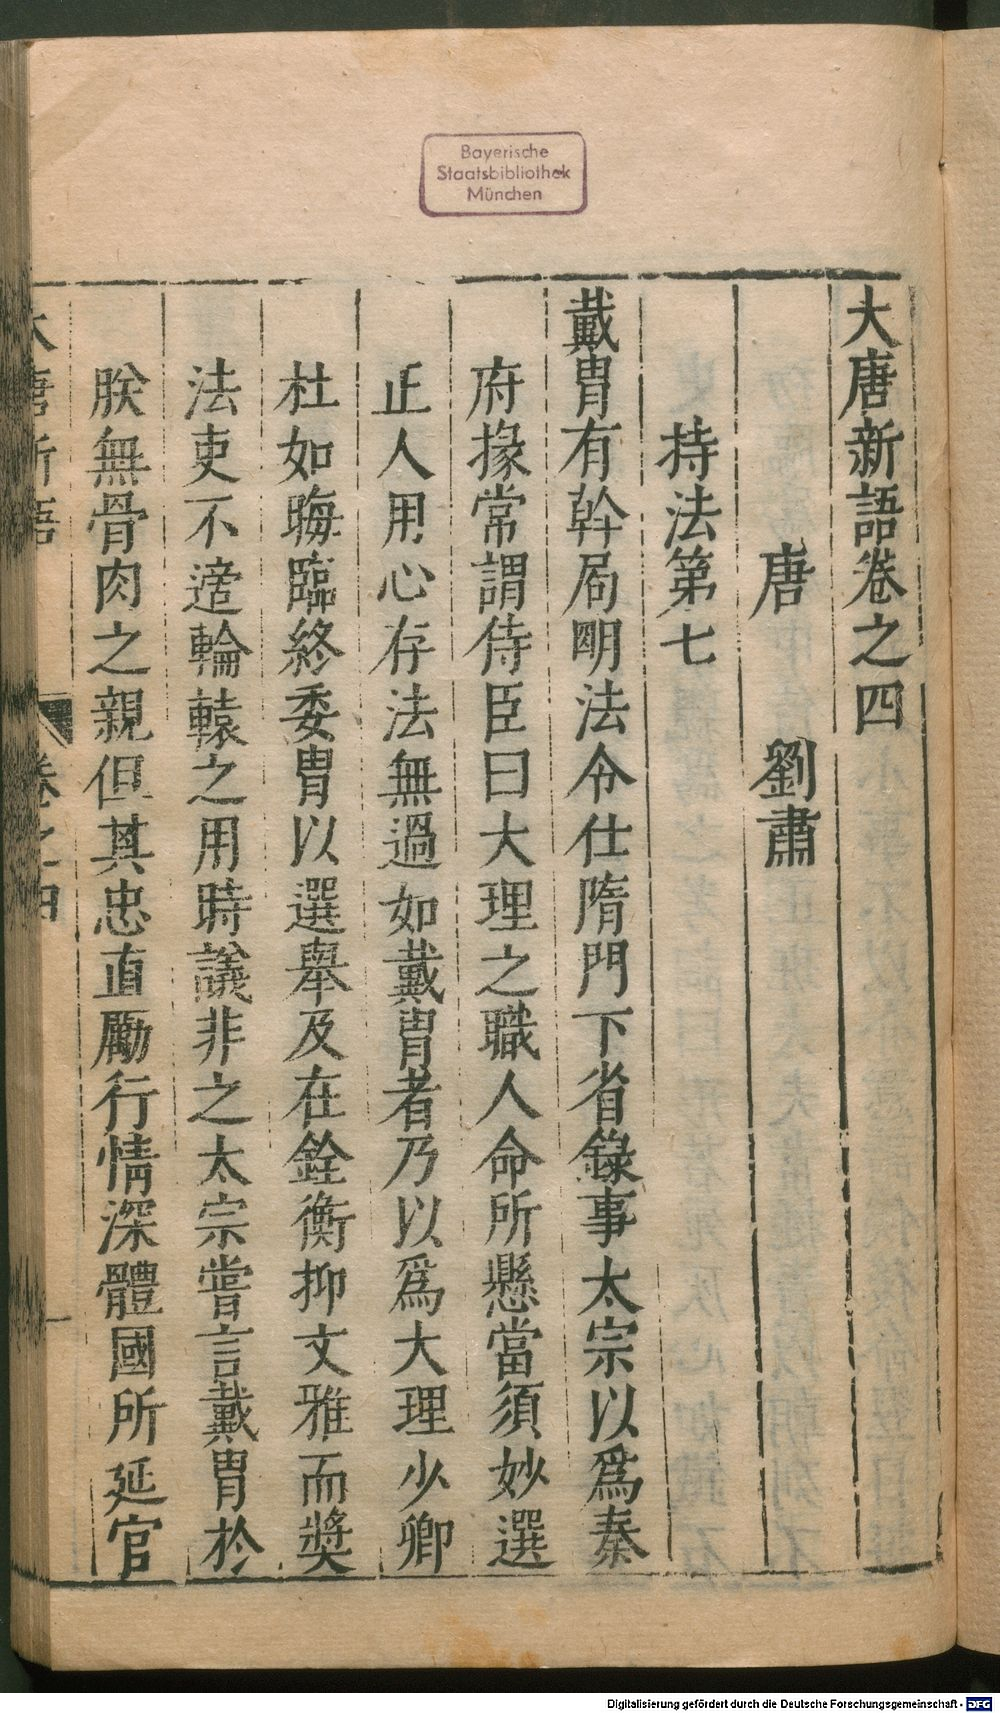 Bayerische
Staatsbibliothek
München
大唐新語卷之四
唐 劉肅
持法第七
戴冑有幹局明法令仕隋門下省錄事太宗以爲秦
府掾常謂侍臣曰大理之職人命所懸當須妙選
正人用心存法無過如戴冑者乃以爲大理少卿
杜如晦臨終委冑以選舉及在銓衡抑文雅而奬
法吏不適輪轅之用時議非之太宗嘗言戴冑於
朕無骨肉之親但其忠直勵行情深體國所延官
大唐新語 卷之四 一
Digitalisierung gefördert durch die Deutsche Forschungsgemeinschaft - DFG